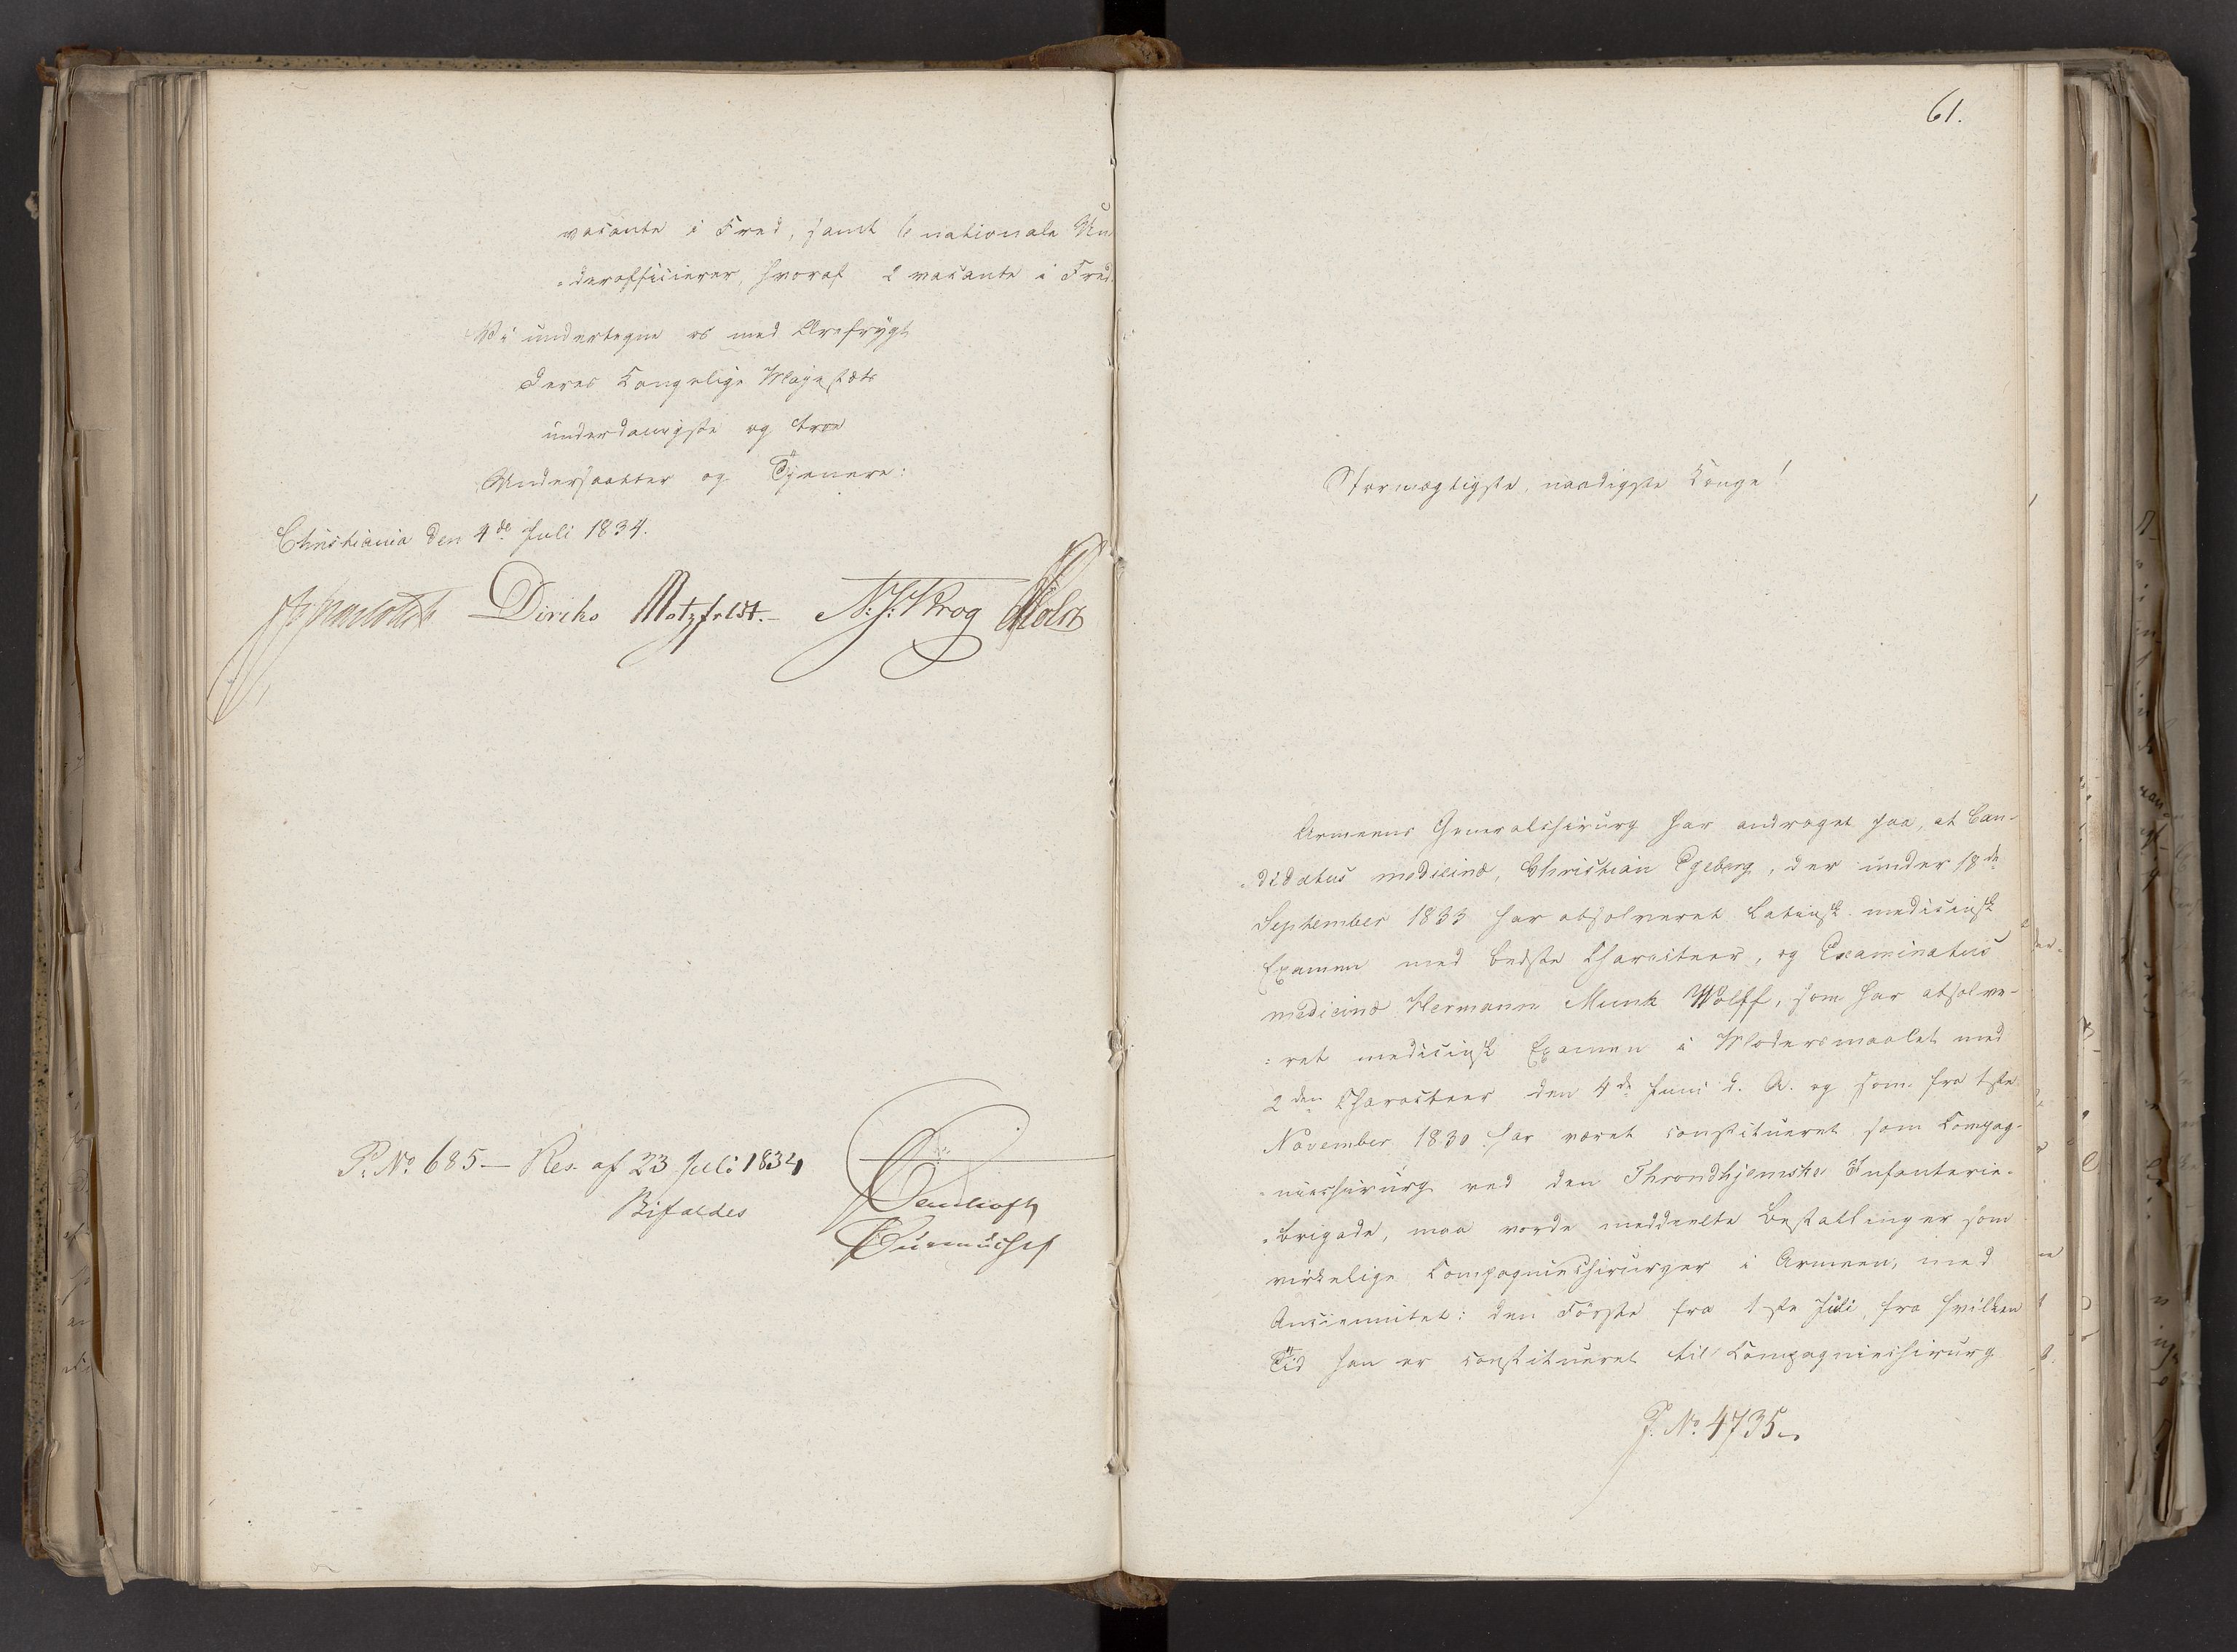 vacante i Fred, samt 6 nationale Un
=derofficierer, hvoraf 2 vacante i Fred.
Vi undertegne os med Ærefrygt
Deres Kongelige Majestæts
underdanigste og troe
Undersaatter og Tjenere:
Christiania den 4de Juli 1834.
Diriks Motzfeldt.– N: J: Krog Holst
P. No 685 – Res. af 23 Juli 1834
Bifaldes
61.
Stormægtigste, naadigste Konge!
Armeens Generalchirurg har andraget paa, at Can-
=didatus medicinæ, Christian Egeberg, der under 18de
September 1833 har absolveret latinsk medicinsk
Examen med bedste Charakteer, og Examinatus
medicinæ Hermann Munk Wolff, som har absolve-
=ret medicinsk Examen i Modersmaalet med
2den Charakteer den 4de Juni d. A. og som fra 1ste
November 1830 har været constitueret som Compag-
=niechirurg ved den Throndhjemske Infanterie-
=brigade, maa vorde meddeelte Bestallinger som
virkelige Compagniechirurger i Armeen, med
Anciennitet: den Første fra 1ste Juli, fra hvilken
Tid han er constitueret til Compagniechirurg
J. No 4735